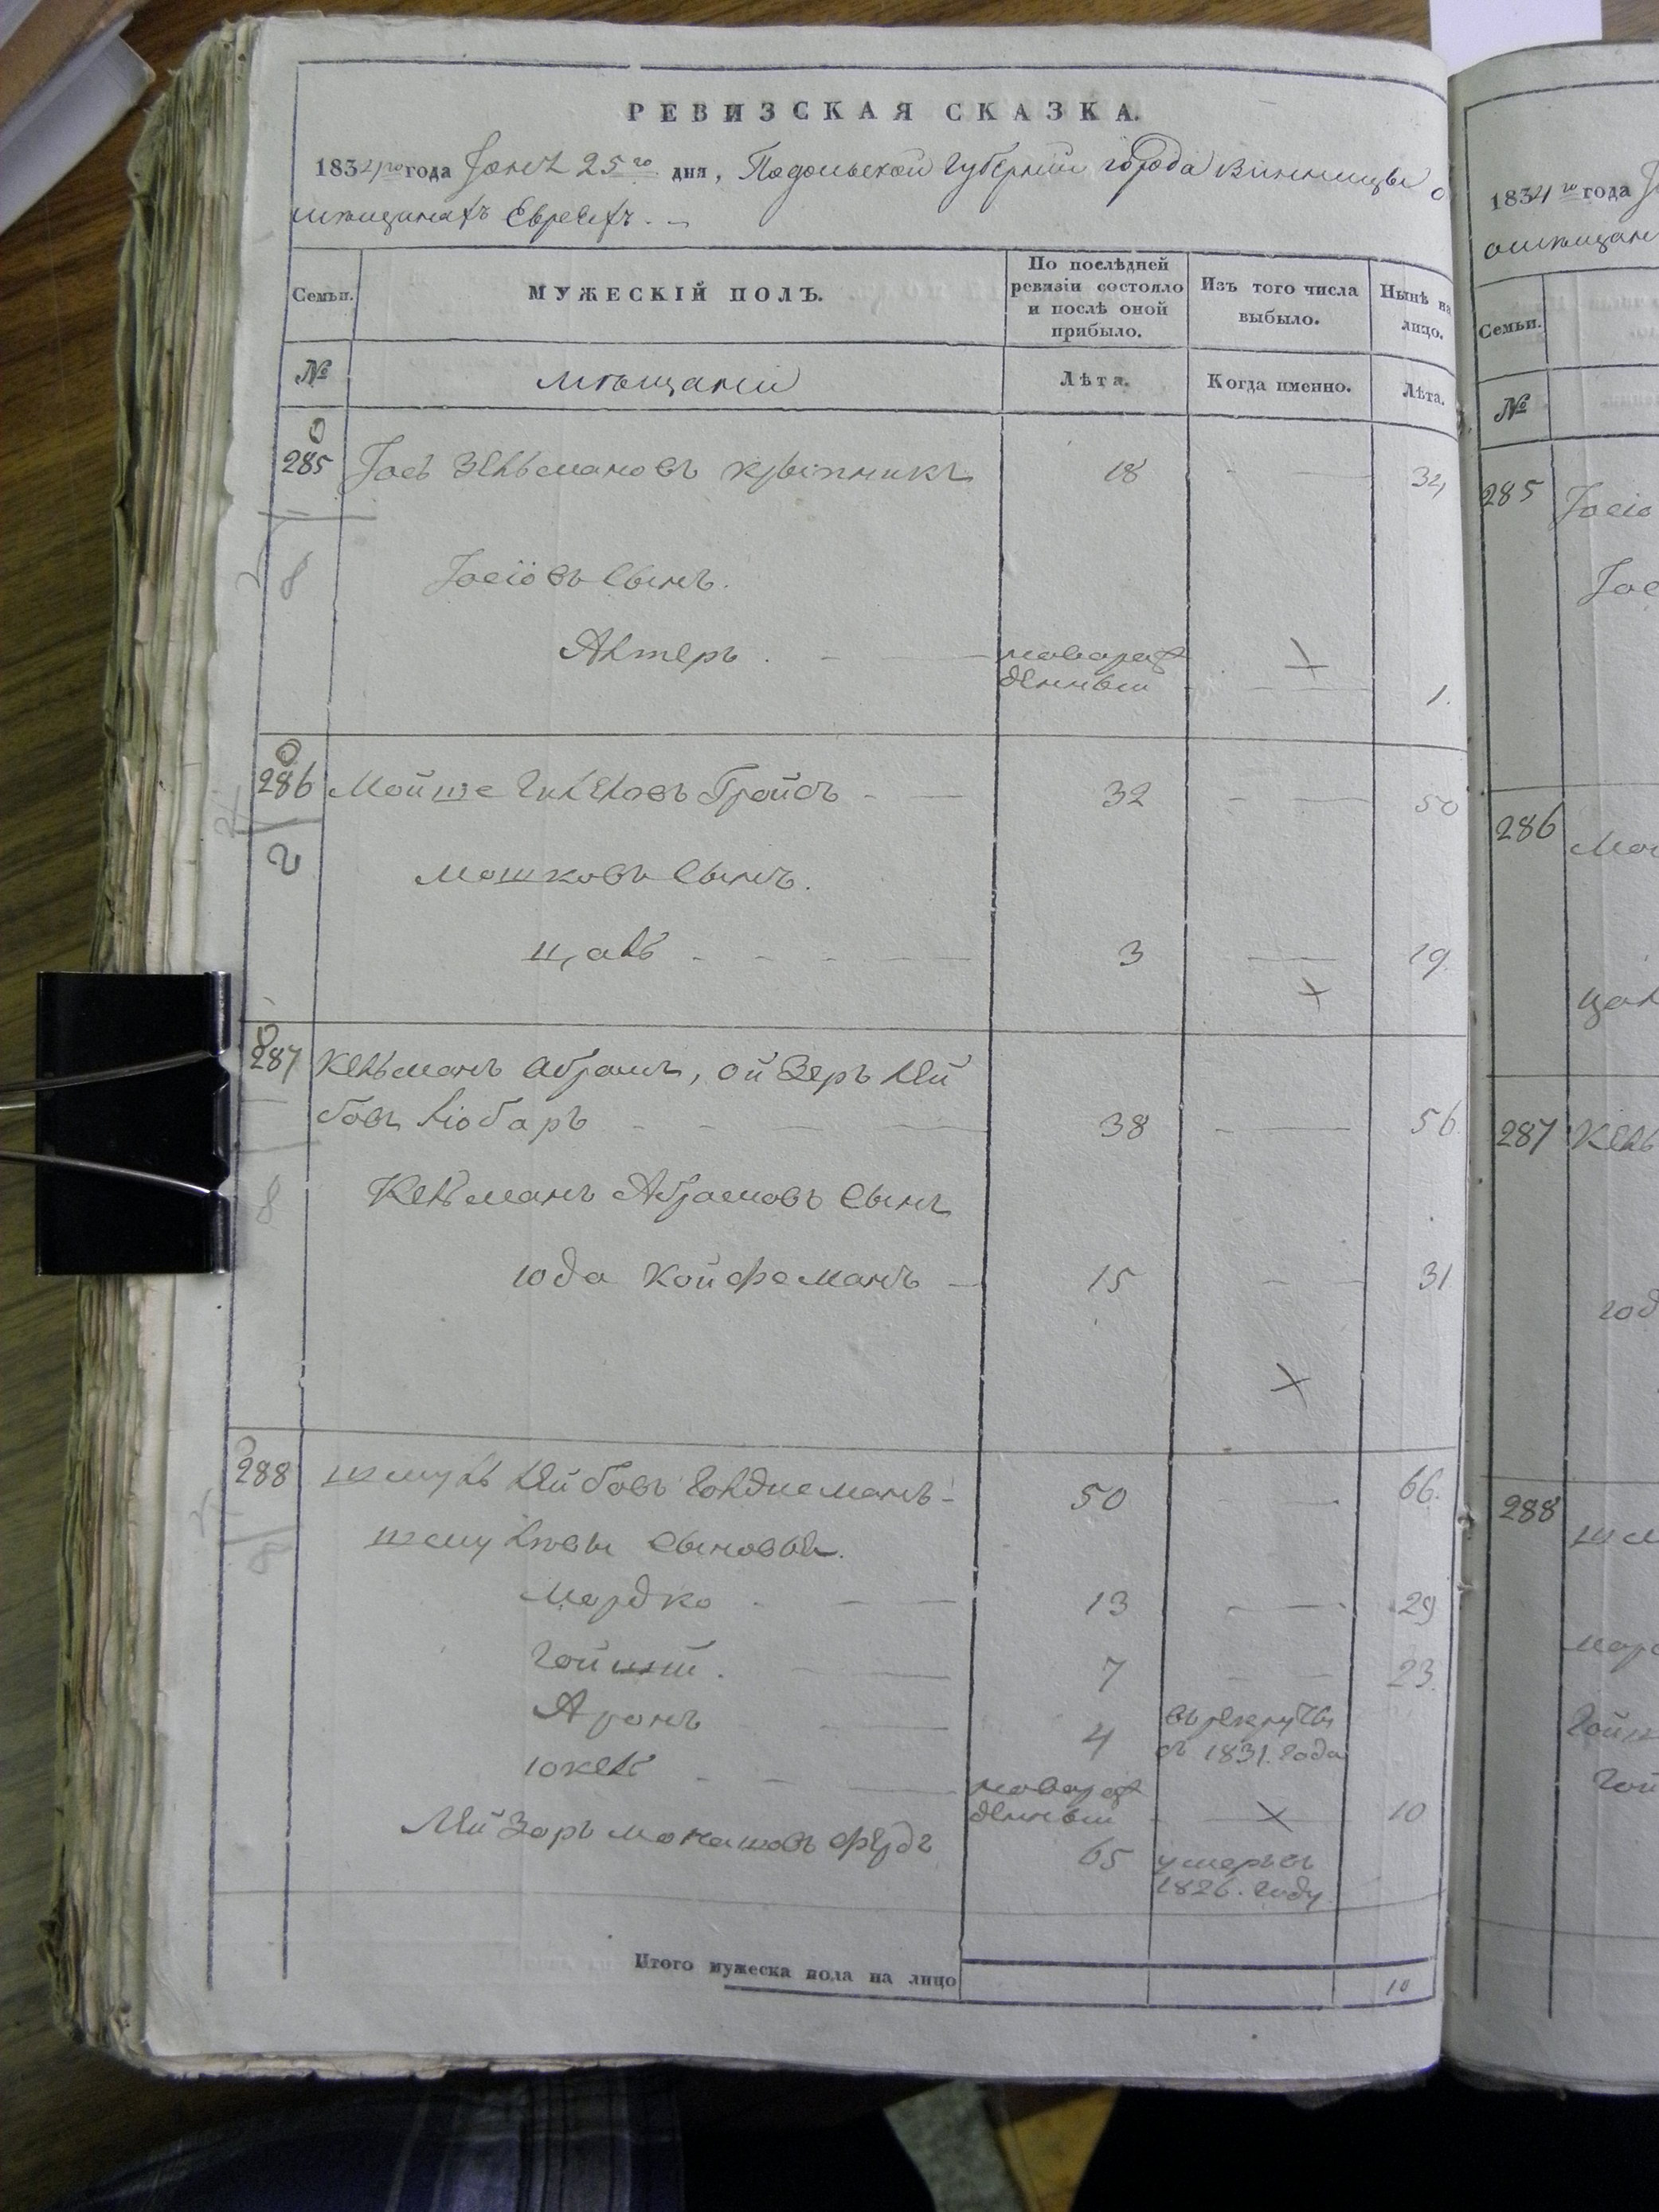 РЕВИЗСКАЯ СКАЗКА.
1834го года Іюня 25го дня, Подольской Губерніи города Винницы о
мѣщанахъ Евреяхъ.
Семьи.
МУЖЕСКІЙ ПОЛЪ.
По послѣдней ревизіи состояло и послѣ оной прибыло.
Изъ того числа выбыло.
Нынѣ на лицо.
№
мѣщане
Лѣта.
Когда именно.
Лѣта.
285 Іось Зельмановъ 18 34
8
Іосіовъ Сынъ.
Алтеръ новорож
денный 1.
286 Мойше Гройсъ 32 50
2
Мошковъ Сынъ.
Цаль 3 19
287 Кельманъ Абрамъ, Ойзеръ Лей
бовъ Любаръ 38 56
8
Кельманъ Абрамовъ Сынъ
Юда Койфманъ 15 31
288 Шмуль Лейбовъ 50 66.
Шмулевы Сыновья.
8
Мордко 13 29
7 23.
Аронъ 4 въ рекруты
съ 1831. года
Юкель новорож
денный 10
Лейзоръ Монашовъ 65 умеръ въ
1826. году.
Итого мужеска пола на лицо 10
1834го года
Семьи.
№
285
286
287
288